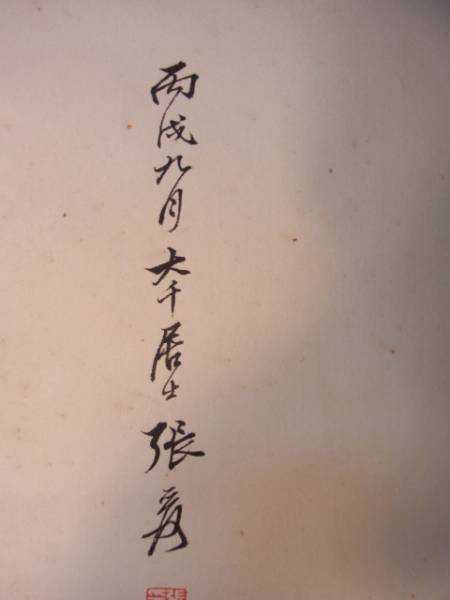 丙戌九月大千居士張爰